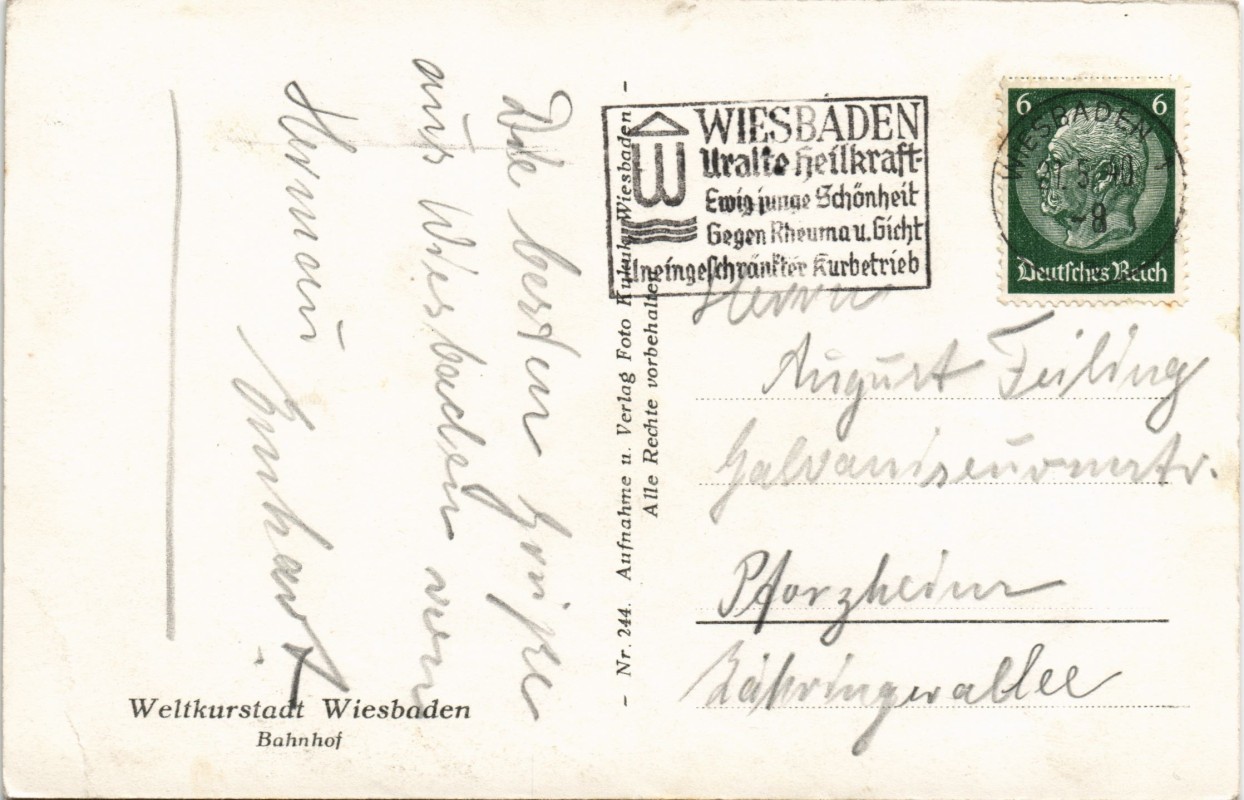 Die besten Grüße
aus Wiesbaden von
Hermann
Weltkurstadt Wiesbaden
Bahnhof
- Nr. 244. Aufnahme u. Verlag Foto Wiesbaden -
Alle Rechte vorbehalten
WIESBADEN
Uralte Heilkraft-
Ewig junge Schönheit
Gegen Rheuma u. Gicht
Uneingeschränkter Kurbetrieb
W
6 6
Deutsches Reich
WIESBADEN
5.40
-8
Herrn
August Feiling
Galvaniseurmstr.
Pforzheim
Zähringerallee